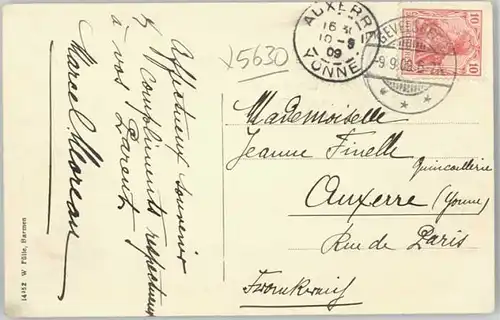 Affectueux souvenir
& compliments respectueux
à vos Parents
Marcel Moreau
14452 W Fülle, Barmen
x5630
AUXERRE
16 30
10 - 9
09
YONNE
GEVELSBERG
9.9.09
10
10
Mademoiselle
Jeanne Finelle
Quincaillerie
Auxerre (Yonne)
Rue de Paris
Frankreich